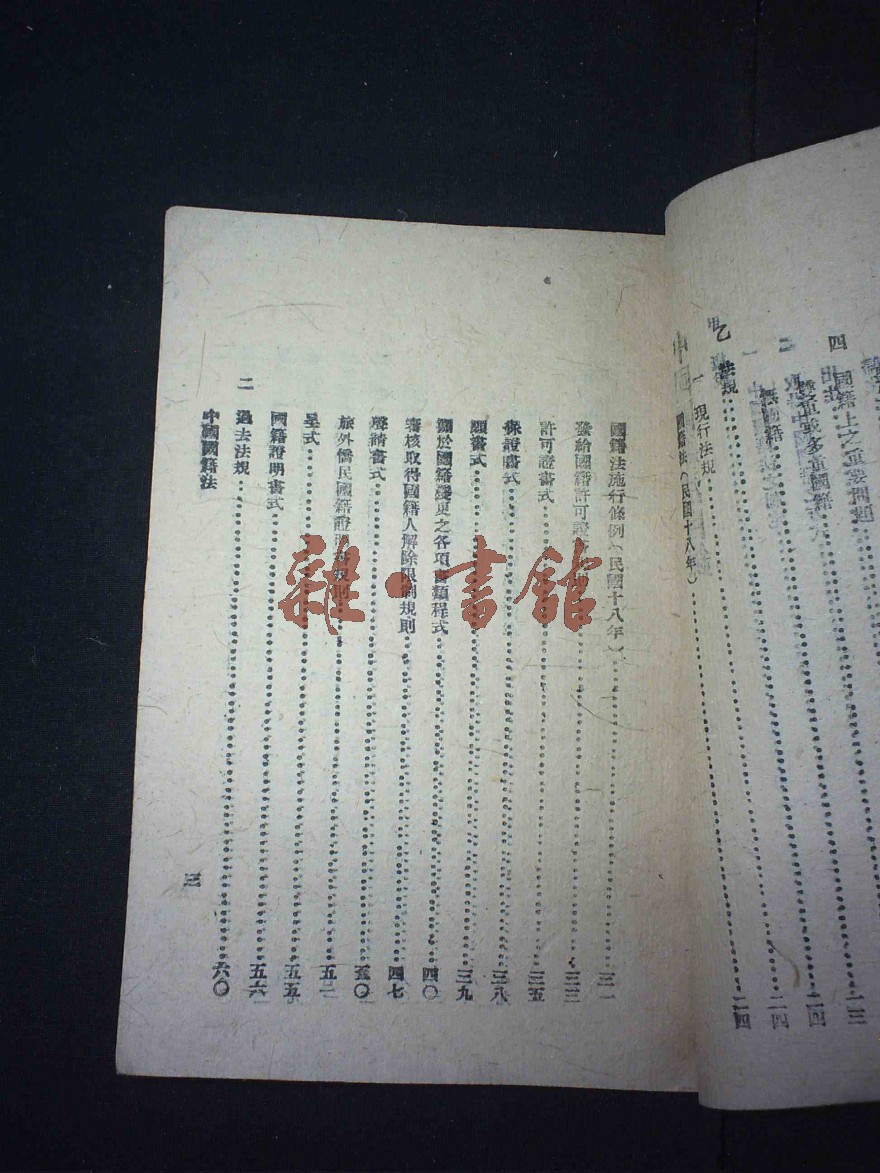 四 國籍上之重要問題……二三
雙重或多重國籍……二四
無國籍……二四
乙 法規……二四
一 現行法規
國籍法（民國十八年）
國籍法施行條例（民國十八年）……三一
發給國籍許可證……三三
許可證書式……三五
保證書式……三八
願書式……三九
關於國籍變更之各項書類程式……四〇
審核取得國籍人解除限制規則……四七
聲請書式……五〇
旅外僑民國籍證明書規則……五二
呈式……五五
國籍證明書式……五六
二 過去法規……六〇
中國國籍法
三
雜·書館